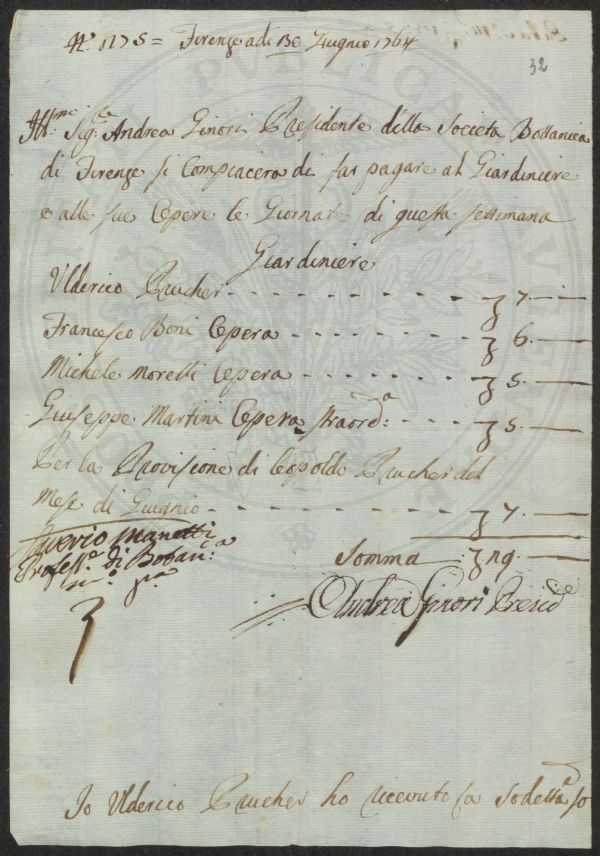 Firenze adi 30 Giugnio 1764
32
Ill:mo Sig:re Andrea Ginori Presidente della Società Bottanica
di Firenze si Compiacerà di far pagare al Giardiniere
e alle sue Opere le Giornate di questa settimana
Giardiniere
Ulderico Prucher - - - - - - - - 7. —
Francesco Boni Opera - - - - - - - 6. —
Michele Moretti Opera - - - - - - 5. —
Giuseppe Martini Opera straord:a - - - 5. —
Per la Provisione di Leopoldo Prucher del
Mese di Giugnio - - - - - - - - 7. —
Saverio Manetti
Profess:e di Botan:ca
Somma
m:o p:a
Andrea Ginori Presid:e
Io Ulderico Prucher ho riceuto la Sodetta